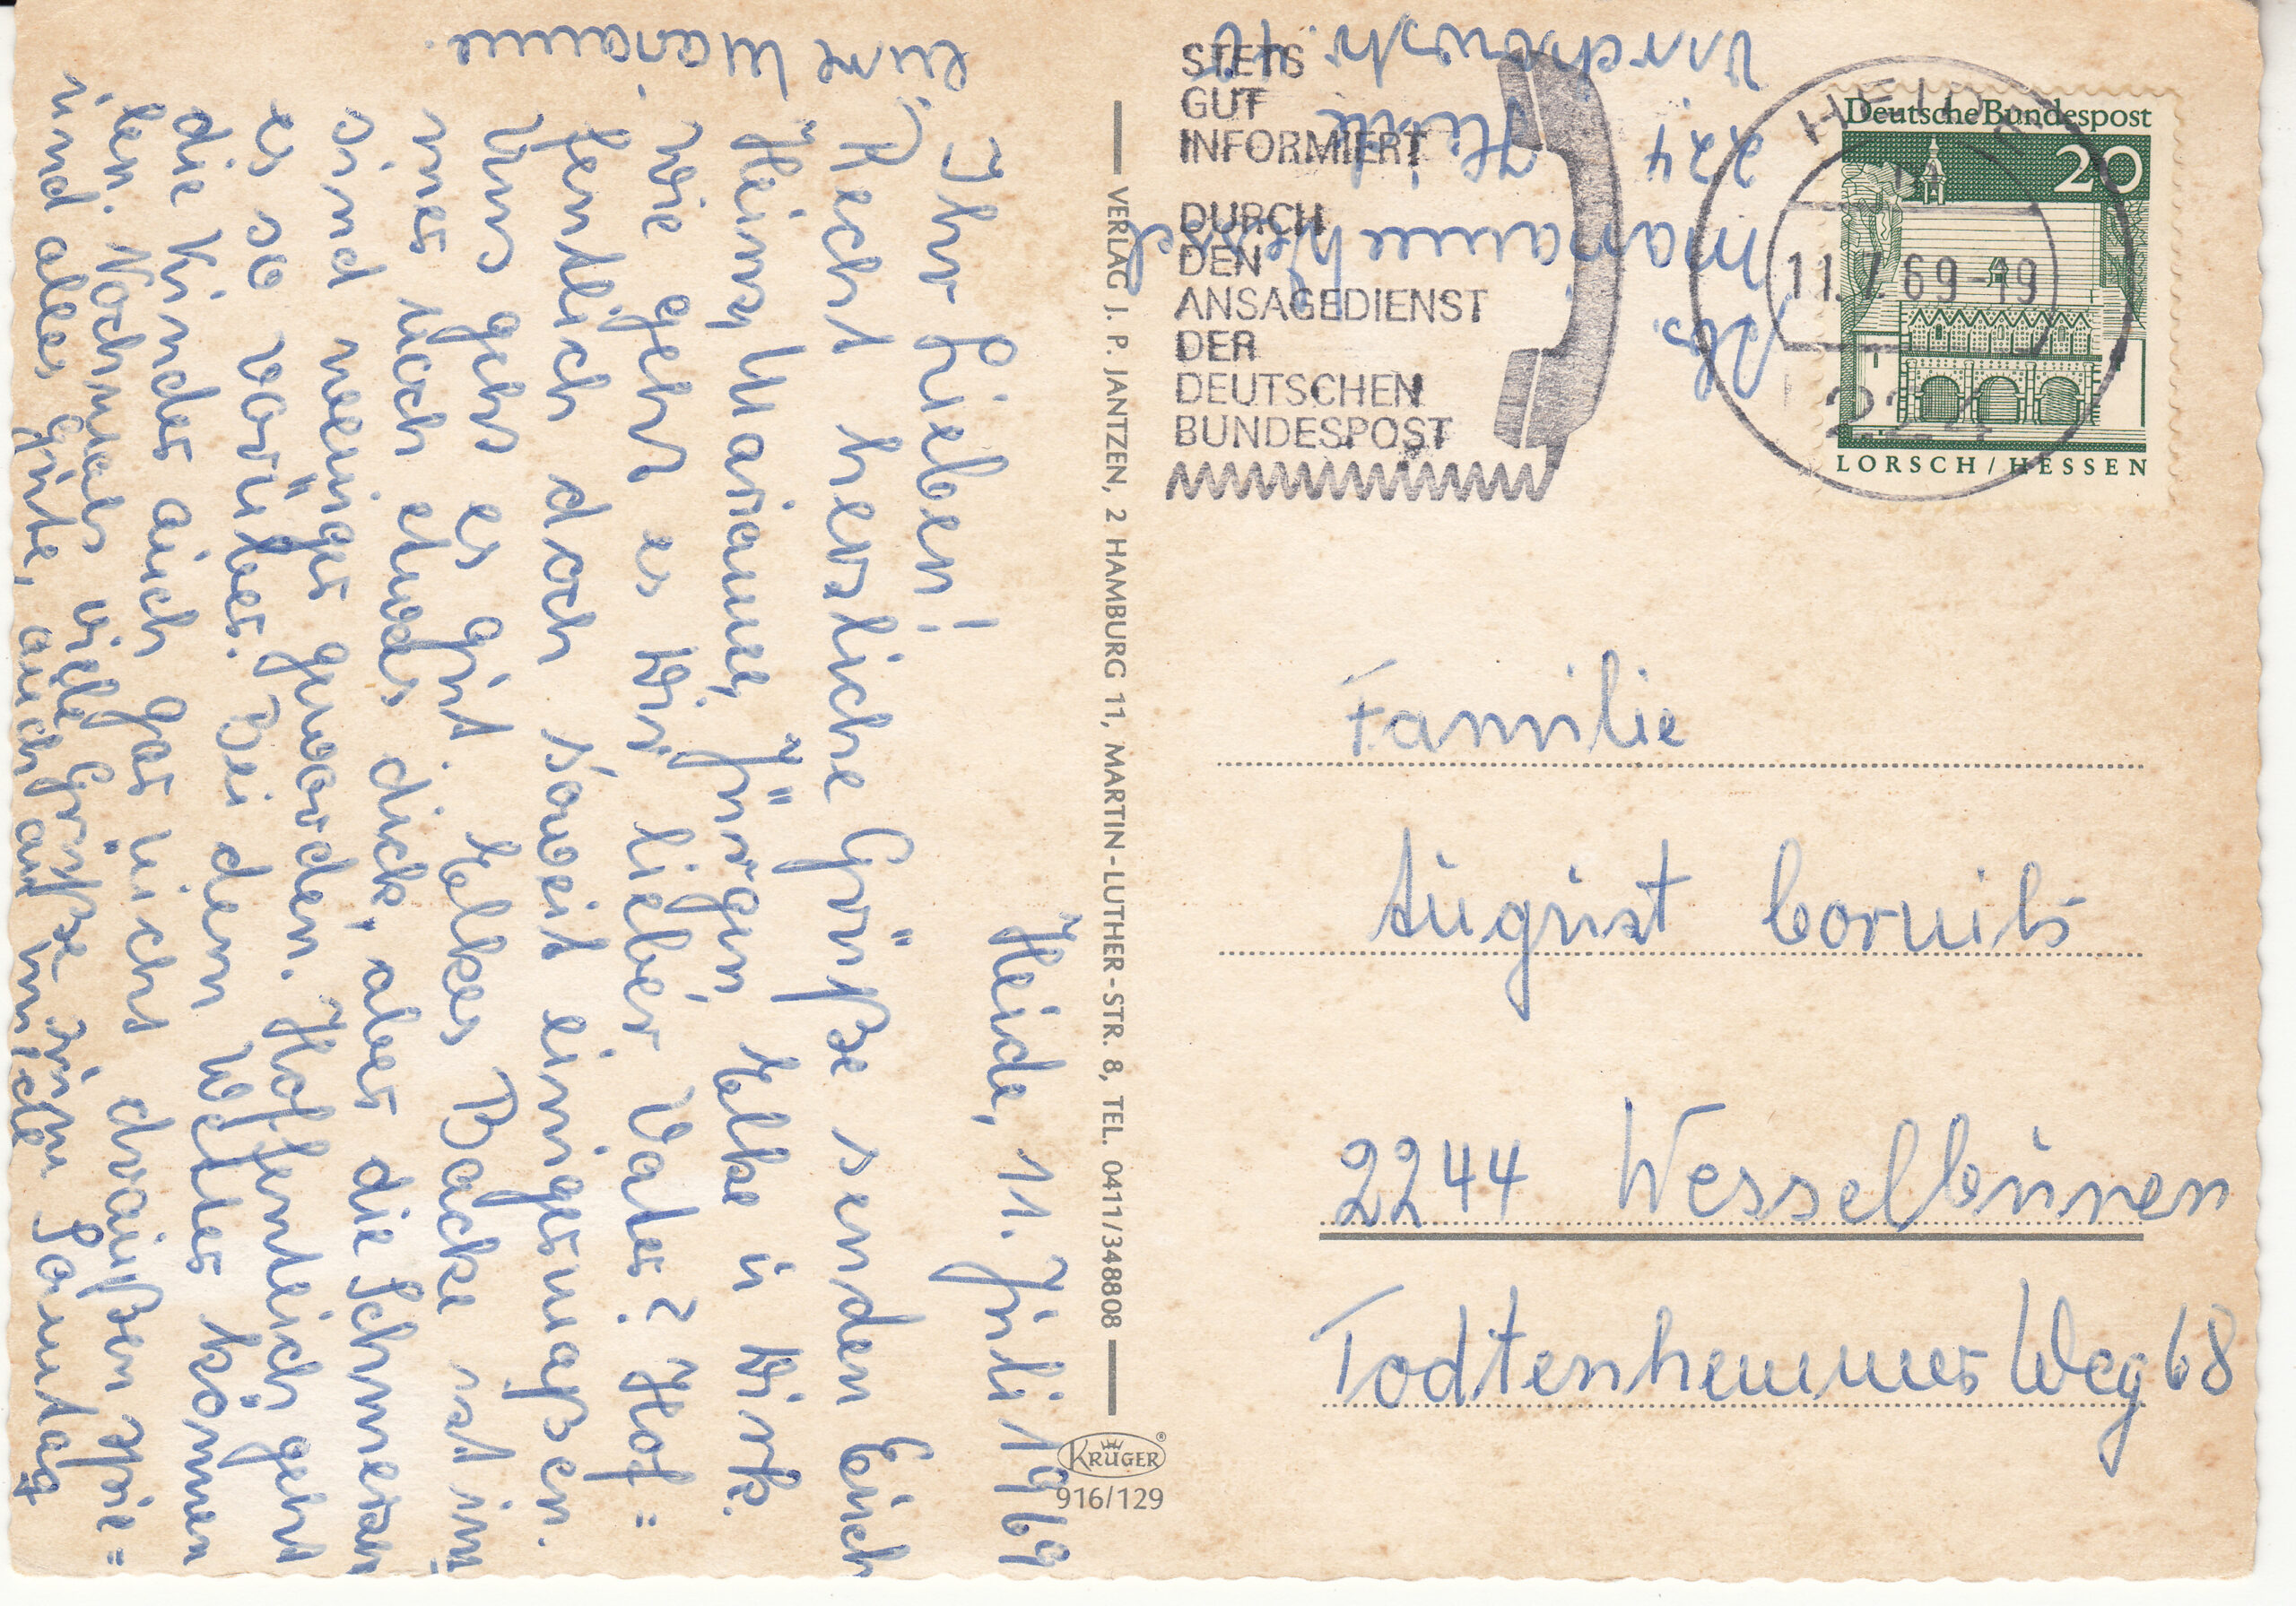 Heide, 11. Juli 1969
Ihr Lieben!
Recht herzliche Grüße senden Euch
Heinz, Marianne, Jürgen, Helke u. Dirk.
Wie geht es Dir, lieber Vater? Hof=
fentlich doch soweit einigermaßen.
Uns geht es gut. Helkes Backe ist im
mer noch etwas dick, aber die Schmerzen
sind weniger geworden. Hoffentlich geht
es so vorüber. Bei dem Wetter können
die Kinder auch gar nicht draußen spie=
len. Nochmals viele Grüße zum Sonntag
und alles Gute, auch an
eure Marianne.
VERLAG J. P. JANTZEN, 2 HAMBURG 11, MARTIN-LUTHER-STR. 8, TEL. 0411/348808
KRÜGER
916/129
Abs.
Marianne
224 Heide
Virchowstr. 40
STETS
GUT
INFORMIERT
DURCH
DEN
ANSAGEDIENST
DER
DEUTSCHEN
BUNDESPOST
HEIDE
11.7.69-19
224
Deutsche Bundespost
20
LORSCH/HESSEN
Familie
August Cornils
2244 Wesselburen
Todtenhemmer Weg 68